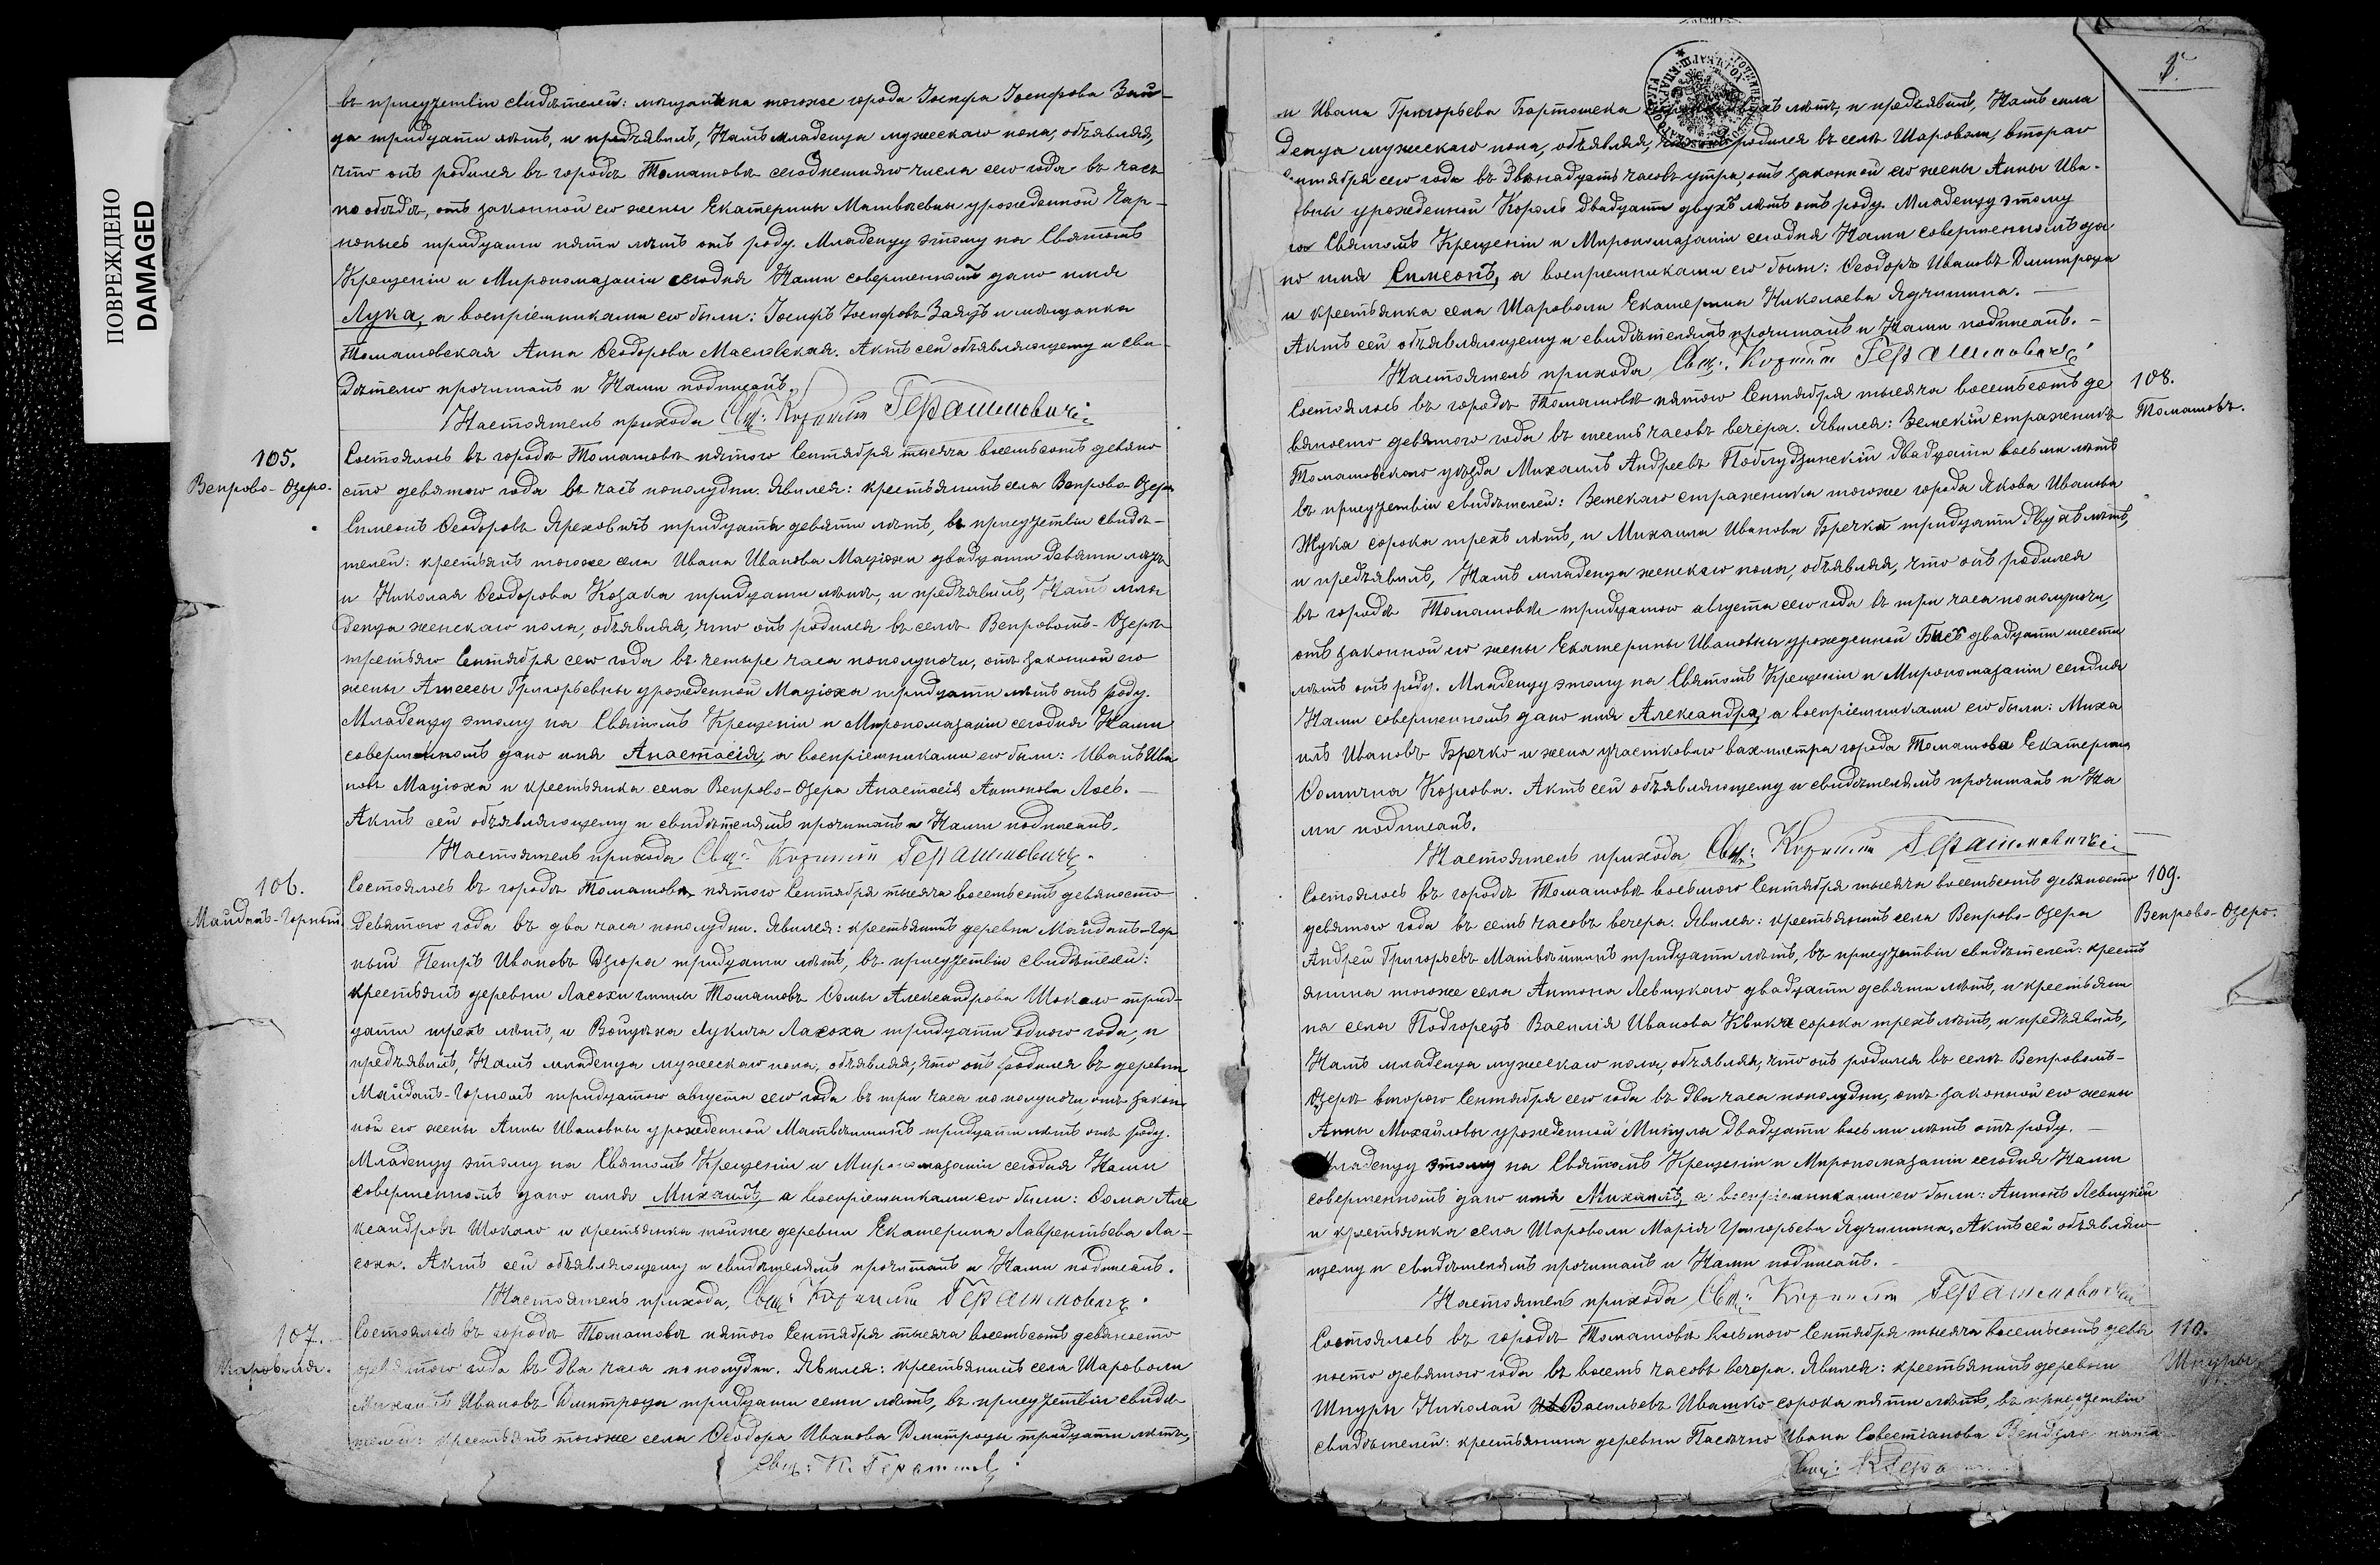 ПОВРЕЖДЕНО
DAMAGED
въ присутствіи свидѣтелей: мѣщанина тогоже города Іосифа Іосифова Зай-
ца тридцати лѣтъ, и предъявилъ, Намъ младенца мужескаго пола, объявляя,
что онъ родился въ городѣ Томашовѣ сегоднешняго числа сего года въ часъ
по обѣдѣ, отъ законной его жены Екатерины Матвѣевны урожденной
тридцати пяти лѣтъ отъ роду. Младенцу этому на Святомъ
Крещеніи и Миропомазаніи сегодня Нами совершенномъ дано имя
Лука, а воспріемниками его были: Іосифъ Іосифовъ Заяцъ и мѣщанка
Томашовская Анна Ѳеодорова Масловская. Актъ сей объявляющему и сви-
дѣтелю прочитанъ и Нами подписанъ.
Настоятель прихода Свщ: Корнилій Герасимовичъ
105.
Вепрово-Озеро.
Состоялось въ городѣ Томашовѣ пятого Сентября тысяча восемьсотъ девяно
сто девятого года въ часъ пополудни. Явился: крестьянинъ села Вепрово-Озера
Симеонъ Ѳеодоровъ Яреховичъ тридцати девяти лѣтъ, въ присутствіи свидѣ-
телей: крестьянъ тогоже села Ивана Иванова Маціоха двадцати девяти лѣтъ
и Николая Ѳеодорова Козака тридцати лѣтъ, и предъявилъ, Намъ мла
денца женскаго пола, объявляя, что онъ родился въ селѣ Вепровомъ-Озерѣ
третьяго Сентября сего года въ четыре часа пополуночи, отъ законной его
жены Аннссы Григорьевны урожденной Маціоха тридцати лѣтъ отъ роду.
Младенцу этому на Святомъ Крещеніи и Миропомазаніи сегодня Нами
совершенномъ дано имя Анастасія, а воспріемниками его были: Иванъ Ива
новъ Маціоха и крестьянка села Вепрово-Озера Анастасія Антонова Лось.
Актъ сей объявляющему и свидѣтелямъ прочитанъ и Нами подписанъ.
Настоятель прихода Свщ: Корнилій Герасимовичъ.
106.
Майданъ-Горный.
Состоялось въ городѣ Томашовѣ пятого Сентября тысяча восемьсотъ девяносто
девятого года въ два часа пополудни. Явился: крестьянинъ деревни Майданъ-Гор
ный Петръ Ивановъ Дзюра тридцати лѣтъ, въ присутствіи свидѣтелей:
крестьянъ деревни Ласохи гмины Томашовъ Ѳомы Александрова Шокало трид-
цати трехъ лѣтъ, и Войцѣха Лукича Ласоха тридцати одного года, и
предъявилъ, Намъ младенца мужескаго пола, объявляя, что онъ родился въ деревни
Майданъ-Горномъ тридцатого августа сего года въ три часа пополуночи отъ закон
ной его жены Анны Ивановны урожденной Матвѣишинъ тридцати лѣтъ отъ роду.
Младенцу этому на Святомъ Крещеніи и Миропомазаніи сегодня Нами
совершенномъ дано имя Михаилъ, а воспріемниками его были: Ѳома Але
ксандровъ Шокало и крестьянка тойже деревни Екатерина Лаврентьева Ла-
соха. Актъ сей объявляющему и свидѣтелямъ прочитанъ и Нами подписанъ.
Настоятель прихода, Свщ: Корнилій Герасимовичъ.
107.
Шаровола.
Состоялось въ городѣ Томашовѣ пятого Сентября тысяча восемьсотъ девяносто
девятого года въ два часа пополудни. Явился: крестьянинъ села Шароволи
Михаилъ Ивановъ Дмитроца тридцати семи лѣтъ, въ присутствіи свидѣ-
телей: крестьянъ тогоже села Ѳеодора Иванова Дмитроцы тридцати лѣтъ,
Свщ: К. Герасимов
и Ивана Григорьева Бартошека лѣтъ, и предъявилъ, Намъ мла
денца мужескаго пола, объявляя, родился въ селѣ Шароволи, второго
Сентября сего года въ двѣнадцать часовъ утра, отъ законной его жены Анны Ива-
новны урожденной Король двадцати двухъ лѣтъ отъ роду. Младенцу этому
на Святомъ Крещеніи и Миропомазаніи сегодня Нами совершенномъ да
но имя Симеонъ, а воспріемниками его были: Ѳеодоръ Ивановъ Дмитроца
и крестьянка села Шароволи Екатерина Николаева Ядчишина.
Актъ сей объявляющему и свидѣтелямъ прочитанъ и Нами подписанъ.
Настоятель прихода Свщ: Корнилій Герасимовичъ
108.
Томашовъ.
Состоялось въ городѣ Томашовѣ пятого Сентября тысяча восемьсотъ де
вяносто девятого года въ шесть часовъ вечера. Явился: Земскій стражникъ
Томашовскаго уѣзда Михаилъ Андреевъ Поблудзинскій двадцати восьми лѣтъ
въ присутствіи свидѣтелей: Земскаго стражника тогоже города Якова Иванова
Жука сорока трехъ лѣтъ, и Михаила Иванова Бречка тридцати двухъ лѣтъ,
и предъявилъ, Намъ младенца женскаго пола, объявляя, что онъ родился
въ городѣ Томашовѣ тридцатого августа сего года въ три часа пополуночи,
отъ законной его жены Екатерины Ивановны урожденной Бись двадцати шести
лѣтъ отъ роду. Младенцу этому на Святомъ Крещеніи и Миропомазаніи сегодня
Нами совершенномъ дано имя Александра, а воспріемниками его были: Миха
илъ Ивановъ Бречко и жена участковаго вахмистра города Томашова Екатерина
Ѳомична Козлова. Актъ сей объявляющему и свидѣтелямъ прочитанъ и На
ми подписанъ.
Настоятель прихода Свщ: Корнилій Герасимовичъ
109.
Вепрово-Озеро.
Состоялось въ городѣ Томашовѣ восьмого Сентября тысяча восемьсотъ девяносто
девятого года въ семь часовъ вечера. Явился: крестьянинъ села Вепрово-Озера
Андрей Григорьевъ Матвѣишинъ тридцати лѣтъ, въ присутствіи свидѣтелей: кресть
янина тогоже села Антона Левицкаго двадцати девяти лѣтъ, и крестьяни
на села Подгорецъ Василія Иванова Квика сорока трехъ лѣтъ, и предъявилъ,
Намъ младенца мужескаго пола, объявляя, что онъ родился въ селѣ Вепровомъ-
Озерѣ второго Сентября сего года въ два часа пополудни, отъ законной его жены
Анны Михайловы урожденной Микула двадцати восьми лѣтъ отъ роду.
Младенцу этому на Святомъ Крещеніи и Миропомазаніи сегодня Нами
совершенномъ дано имя Михаилъ, а воспріемниками его были: Антонъ Левицкій
и крестьянка села Шароволи Марія Григорьева Ядчишина. Актъ сей объявляю
щему и свидѣтелямъ прочитанъ и Нами подписанъ.
Настоятель прихода Свщ: Корнилій Герасимовичъ
110.
Шпуры
Состоялось въ городѣ Томашовѣ восьмого Сентября тысяча восемьсотъ девя
носто девятого года въ восемь часовъ вечера. Явился: крестьянинъ деревни
Шпуры Николай Васильевъ Ивашко сорока пяти лѣтъ, въ присутствіи
свидѣтелей: крестьянина деревни Пасѣчно Ивана Совестіанова
Свщ: К Гера